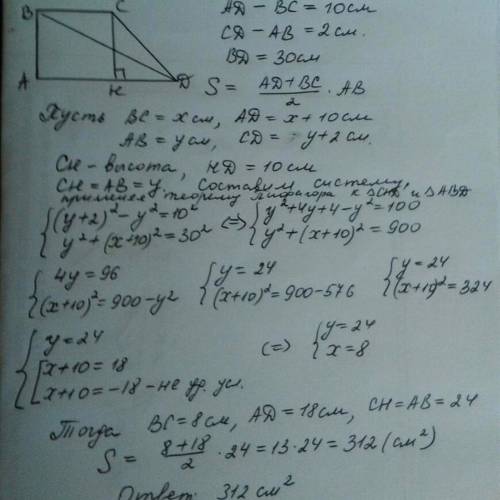 B C
A H D
AD - BC = 10 см
CD - AB = 2 см.
BD = 30 см
S = (AD+BC)/2 · AB
Пусть BC = x см, AD = x + 10 см
AB = y см, CD = y + 2 см.
CH - высота, HD = 10 см
CH = AB = y. Составим систему,
применяя теорему Пифагора к ΔCHD и ΔABD
{(y+2)² - y² = 10² <=> {y² + 4y + 4 - y² = 100
{y² + (x+10)² = 30² {y² + (x+10)² = 900
{4y = 96 {y = 24 {y = 24
{(x+10)² = 900 - y² {(x+10)² = 900 - 576 {(x+10)² = 324
{y = 24
[x+10 = 18 (=) {y = 24
[x+10 = -18 - не уд. ул. {x = 8
Тогда BC = 8 см, AD = 18 см, CH = AB = 24
S = (8+18)/2 · 24 = 13 · 24 = 312 (см²)
Ответ: 312 см²